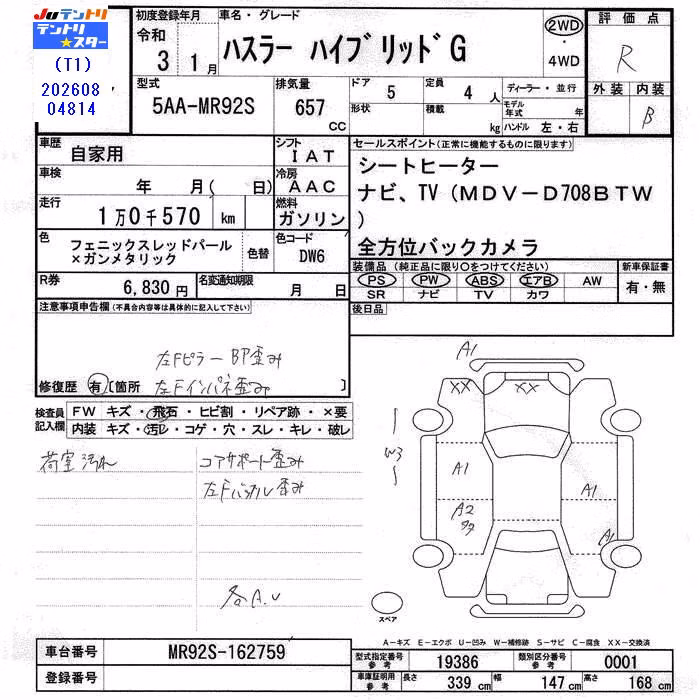 Juテントリ
テントリ
★スター
(T1)
202608
04814
初度登録年月
令和
3 1月
車名・グレード
ハスラー ハイブリッドG
2WD
・
4WD
評価点
R
外装 内装
B
型式
5AA-MR92S
排気量
657
CC
ドア
5
定員
4 人
形状
積載
kg
ディーラー・並行
モデル年式 年
ハンドル 左・右
車歴
自家用
シフト
IAT
車検
年 月( 日)
冷房
AAC
走行
1万0千570 km
燃料
ガソリン
色
フェニックスレッドパール
×ガンメタリック
色替
色コード
DW6
R券
6,830円
名変通知期限
月 日
セールスポイント(正常に機能するものに限ります)
シートヒーター
ナビ、TV(MDV-D708BTW
)
全方位バックカメラ
装備品(純正品に限り○をつけてください)
新車保証書
PS PW ABS エアB AW
SR ナビ TV カワ
有・無
後日品
注意事項申告欄(不具合内容等は具体的に記入して下さい)
左Fピラー BP歪み
修復歴 有 [箇所 左Fインパネ歪み ]
検査員
記入欄
FW キズ・飛石・ヒビ割・リペア跡・×要
内装 キズ・汚レ・コゲ・穴・スレ・キレ・破レ
荷室汚れ
コアサポート歪み
各A.U
A1
XX
XX
W3
A1
A2
A1
A1
スペア
A-キズ E-エクボ U-凹み W-補修跡 S-サビ C-腐食 XX-交換済
車台番号
MR92S-162759
登録番号
型式指定番号
参考
19386
類別区分番号
参考
0001
車庫証明用
参考
長さ 339 cm 幅 147 cm 高さ 168 cm